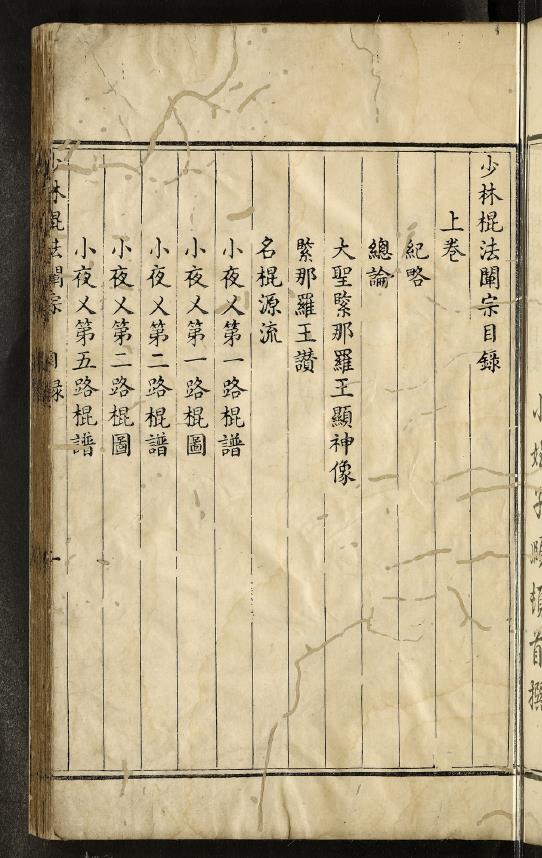 少林棍法闡宗目錄
上巻
紀略
總論
大聖緊那羅王顯神像
緊那羅王讃
名棍源流
小夜乂第一路棍譜
小夜乂第一路棍圖
小夜乂第二路棍譜
小夜乂第二路棍圖
小夜乂第五路棍譜
少林棍法闡宗
目錄
一